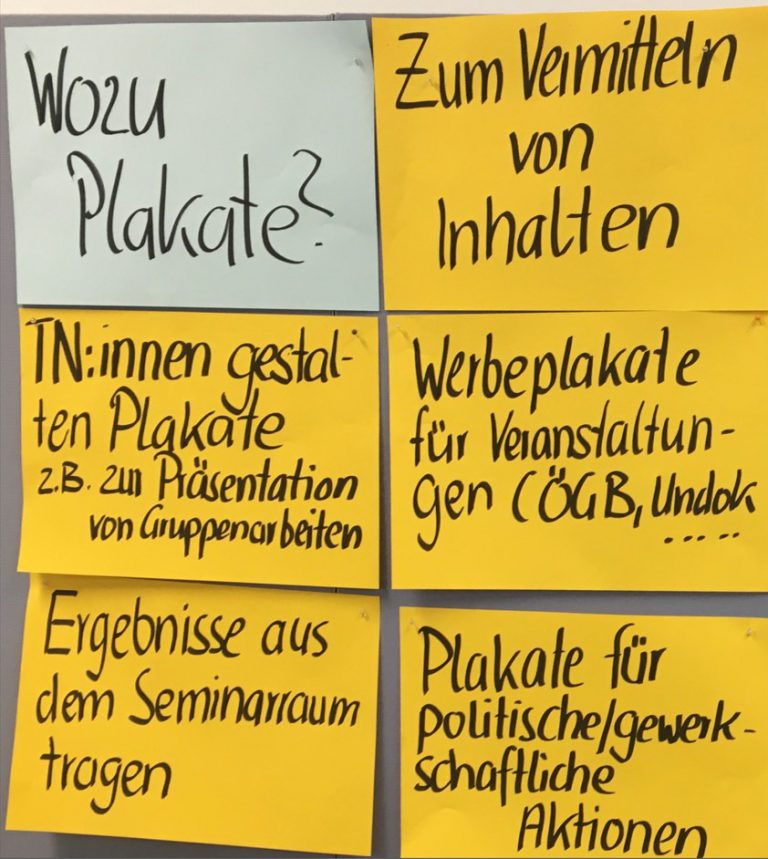 Wozu
Plakate?
Zum Vermitteln
von
Inhalten
TN:innen gestal-
ten Plakate
z.B. zur Präsentation
von Gruppenarbeiten
Werbeplakate
für Veranstaltun-
gen (ÖGB, Undok
.....
Ergebnisse aus
dem Seminarraum
tragen
Plakate für
politische/gewerk-
schaftliche
Aktionen